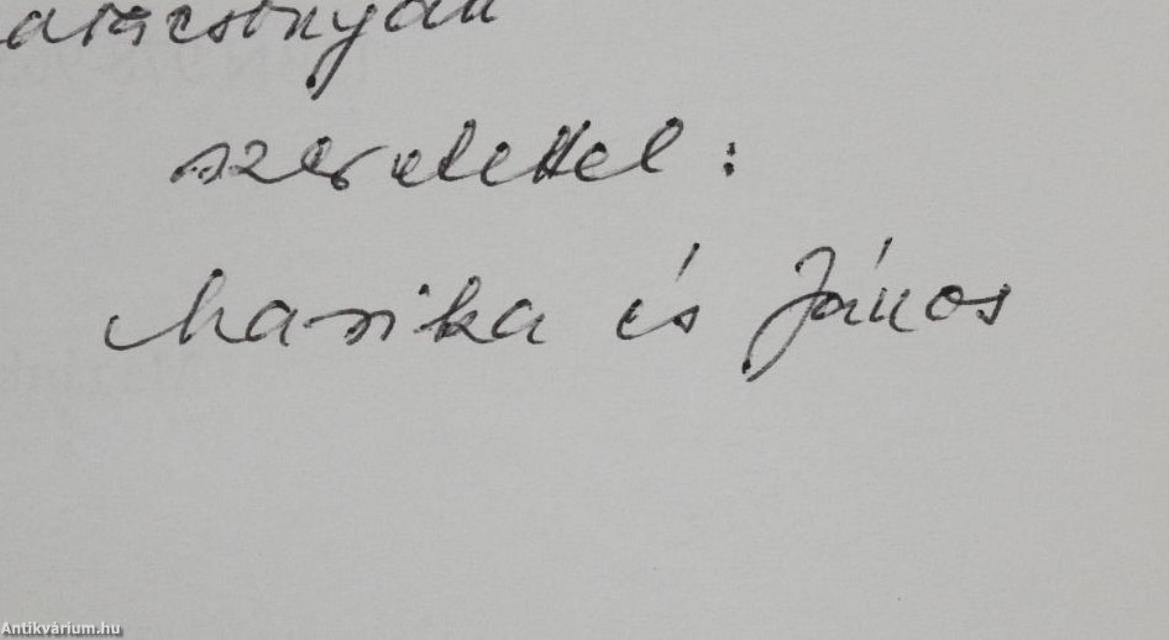 arácsonyán
szeretettel :
Marika és János
Antikvárium.hu